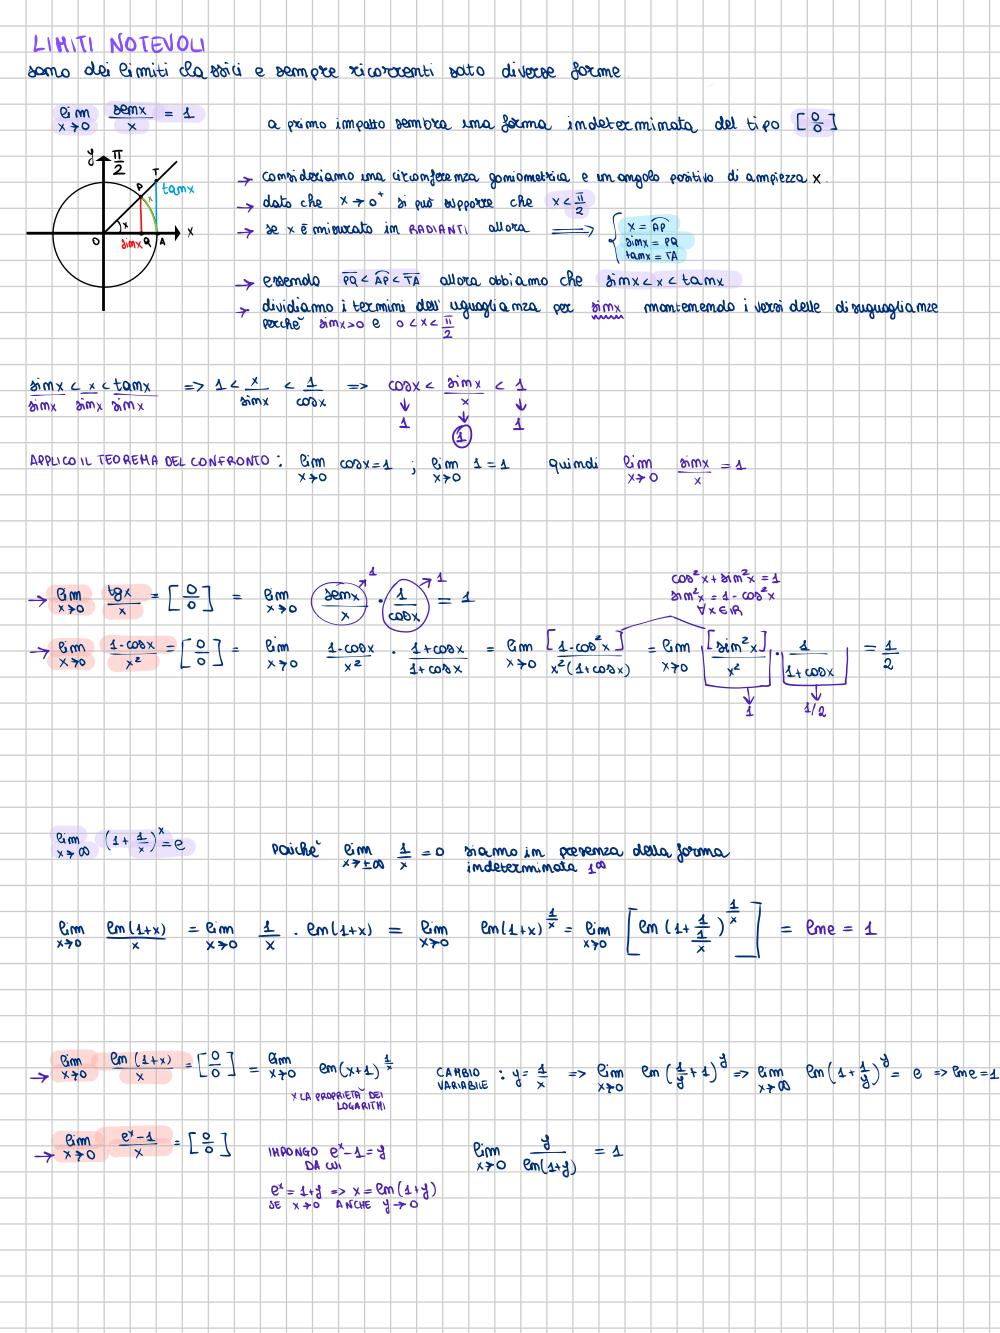 LIMITI NOTEVOLI
sono dei limiti classici e sempre ricorrenti sotto diverse forme
lim x→0 senx/x = 1
a primo impatto sembra una forma indeterminata del tipo [0/0]
y π/2 P T x tanx
→ consideriamo una circonferenza goniometrica e un angolo positivo di ampiezza x.
→ dato che x→0⁺ si può supporre che x < π/2
x O sinx Q A x
→ se x è misurato in RADIANTI allora ⟹ { x = AP
sinx = PQ
tanx = TA
→ essendo PQ < AP < TA allora abbiamo che sinx < x < tanx
→ dividiamo i termini dell'uguaglianza per sinx mantenendo i versi delle disuguaglianze
perché sinx>0 e 0 < x < π/2
sinx/sinx < x/sinx < tanx/sinx => 1 < x/sinx < 1/cosx => cosx < sinx/x < 1
↓ ↓ ↓
1 1 1
APPLICO IL TEOREMA DEL CONFRONTO : lim x→0 cosx=1 ; lim x→0 1=1 quindi lim x→0 sinx/x = 1
→ lim x→0 tgx/x = [0/0] = lim x→0 senx/x →1 · 1/cosx →1 = 1
cos²x + sin²x = 1
sin²x = 1 - cos²x
∀x∈ℝ
→ lim x→0 1-cosx/x² = [0/0] = lim x→0 1-cosx/x² · 1+cosx/1+cosx = lim x→0 [1-cos²x]/x²(1+cosx) = lim x→0 [sin²x]/x² · 1/1+cosx = 1/2
↓ ↓
1 1/2
lim x→∞ (1+1/x)^x = e
Poiché lim x→±∞ 1/x = 0 siamo in presenza della forma
indeterminata 1^∞
lim x→0 ln(1+x)/x = lim x→0 1/x · ln(1+x) = lim x→0 ln(1+x)^1/x = lim x→0 [ln(1+1/(1/x))^1/x] = lne = 1
→ lim x→0 ln(1+x)/x = [0/0] = lim x→0 ln(x+1)^1/x CAMBIO VARIABILE : y = 1/x => lim x→0 ln(1/y+1)^y => lim x→∞ ln(1+1/y)^y = e => lne=1
x LA PROPRIETA' DEI
LOGARITMI
→ lim x→0 e^x-1/x = [0/0] IMPONGO e^x-1=y lim x→0 y/ln(1+y) = 1
DA CUI
e^x = 1+y => x = ln(1+y)
SE x→0 ANCHE y→0